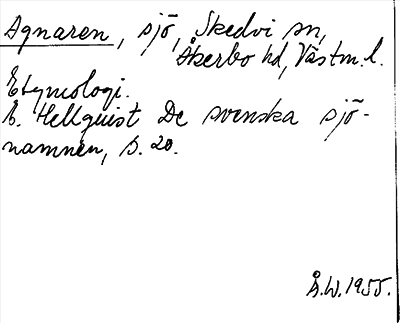 Agnaren, sjö, Skedvi sn,
Åkerbo hd, Västm. l.
Etymologi.
E. Hellquist De svenska sjö-
namnen, s. 20.
Å.W. 1955.